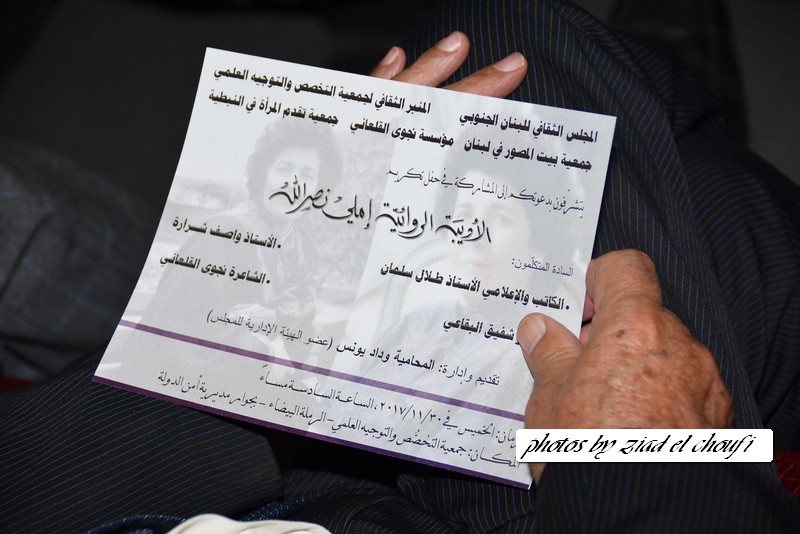 المجلس الثقافي للبنان الجنوبي    المنبر الثقافي لجمعية التخصص والتوجيه العلمي
جمعية بيت المصور في لبنان   مؤسسة نجوى القلعاني   جمعية تقدم المرأة في النبطية
يتشرفون بدعوتكم إلى المشاركة في حفل تكريم
الأديبة الروائية إملي نصرالله
السادة المتكلمون:
• الكاتب والإعلامي الأستاذ طلال سلمان   • الأستاذ واصف شرارة
شفيق البقاعي   • الشاعرة نجوى القلعاني
تقديم وإدارة: المحامية وداد يونس (عضو الهيئة الإدارية للمجلس)
الخميس في ٢٠١٧/١١/٣٠، الساعة السادسة مساءً
المكان: جمعية التخصص والتوجيه العلمي - الرملة البيضاء - بجوار مديرية أمن الدولة
photos by ziad el choufi